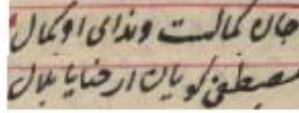 جان کمالست و ندای او کمال
مصطفی کویان ارحنا یا بلال